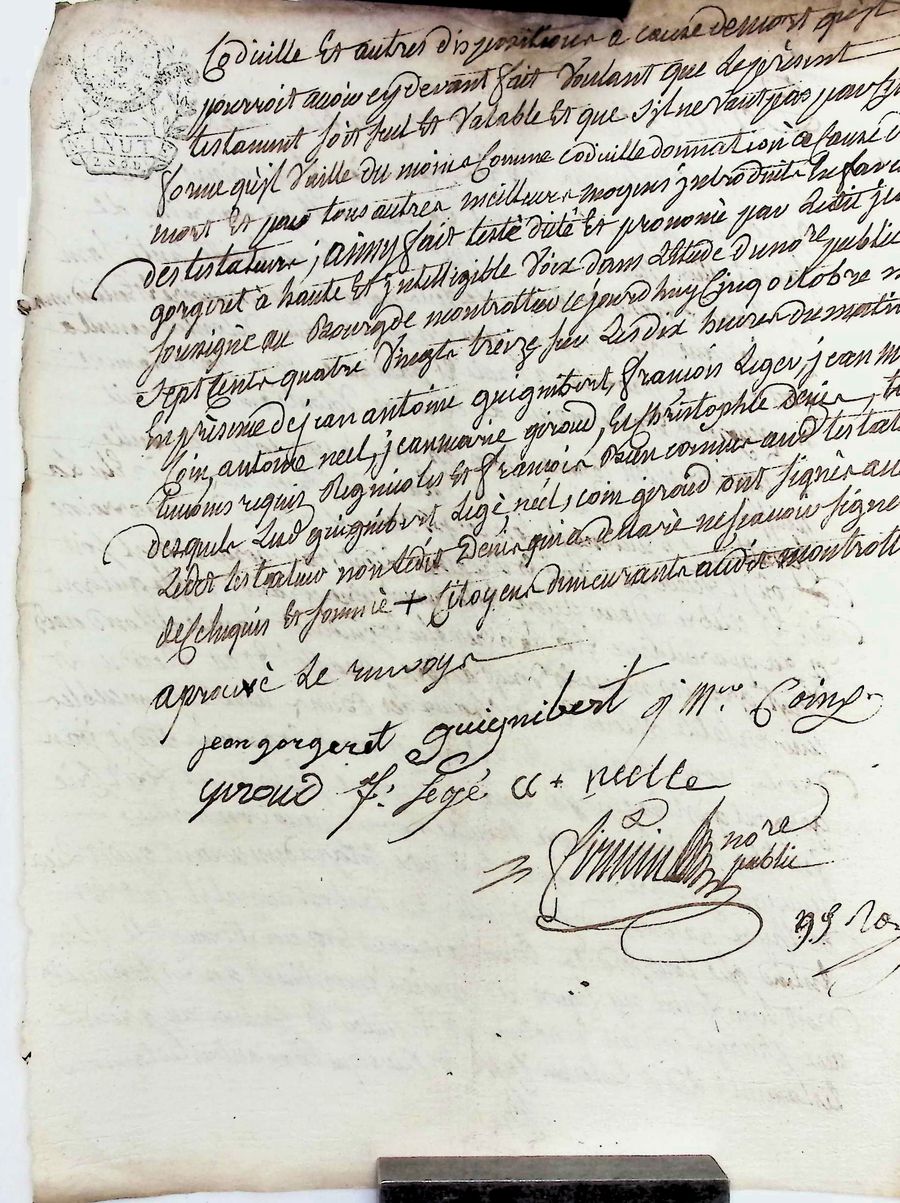 MINUT
Codicille Et autres dispositions a cause de mort qu'jl
pourroit avoir cy devant fait Voulant que Le présent
testament soit seul Et Valable Et que s'jl ne Vaut pas par
forme qu'jl Vaille du moins Comme codicille donnation à Cause
mort Et par tous autres meilleurs moyens jntroduits En faveur
des testateurs ; ainsy fait testé dicté Et prononcé par Ledit
gorgeret à haute Et jntelligible Voix dans L'Etude du nore public
soussigné au Bourg de montrottier ce jourd'huy Cinq octobre
sept Cents quatre Vingts treize sur Les dix heures du matin
En présence de jean antoine guignibert, françois Leger, jean
Coin, antoine néel, jean marie giroud, Et christophle Denis,
témoins requis Regnicoles Et françois Bien connus aud testat
desquels Led guignibert Legé néel, coin giroud ont signés au
Ledit testateur non Ledit Denis qui a declaré ne sçavoir signer
de Ce Enquis Et sommé + Citoyens demeurants audit montrott
aprouvé Le renvoys
jean gorgeret guignibert j Mrie Coing
giroud f. Legé a + néelle
nore
public